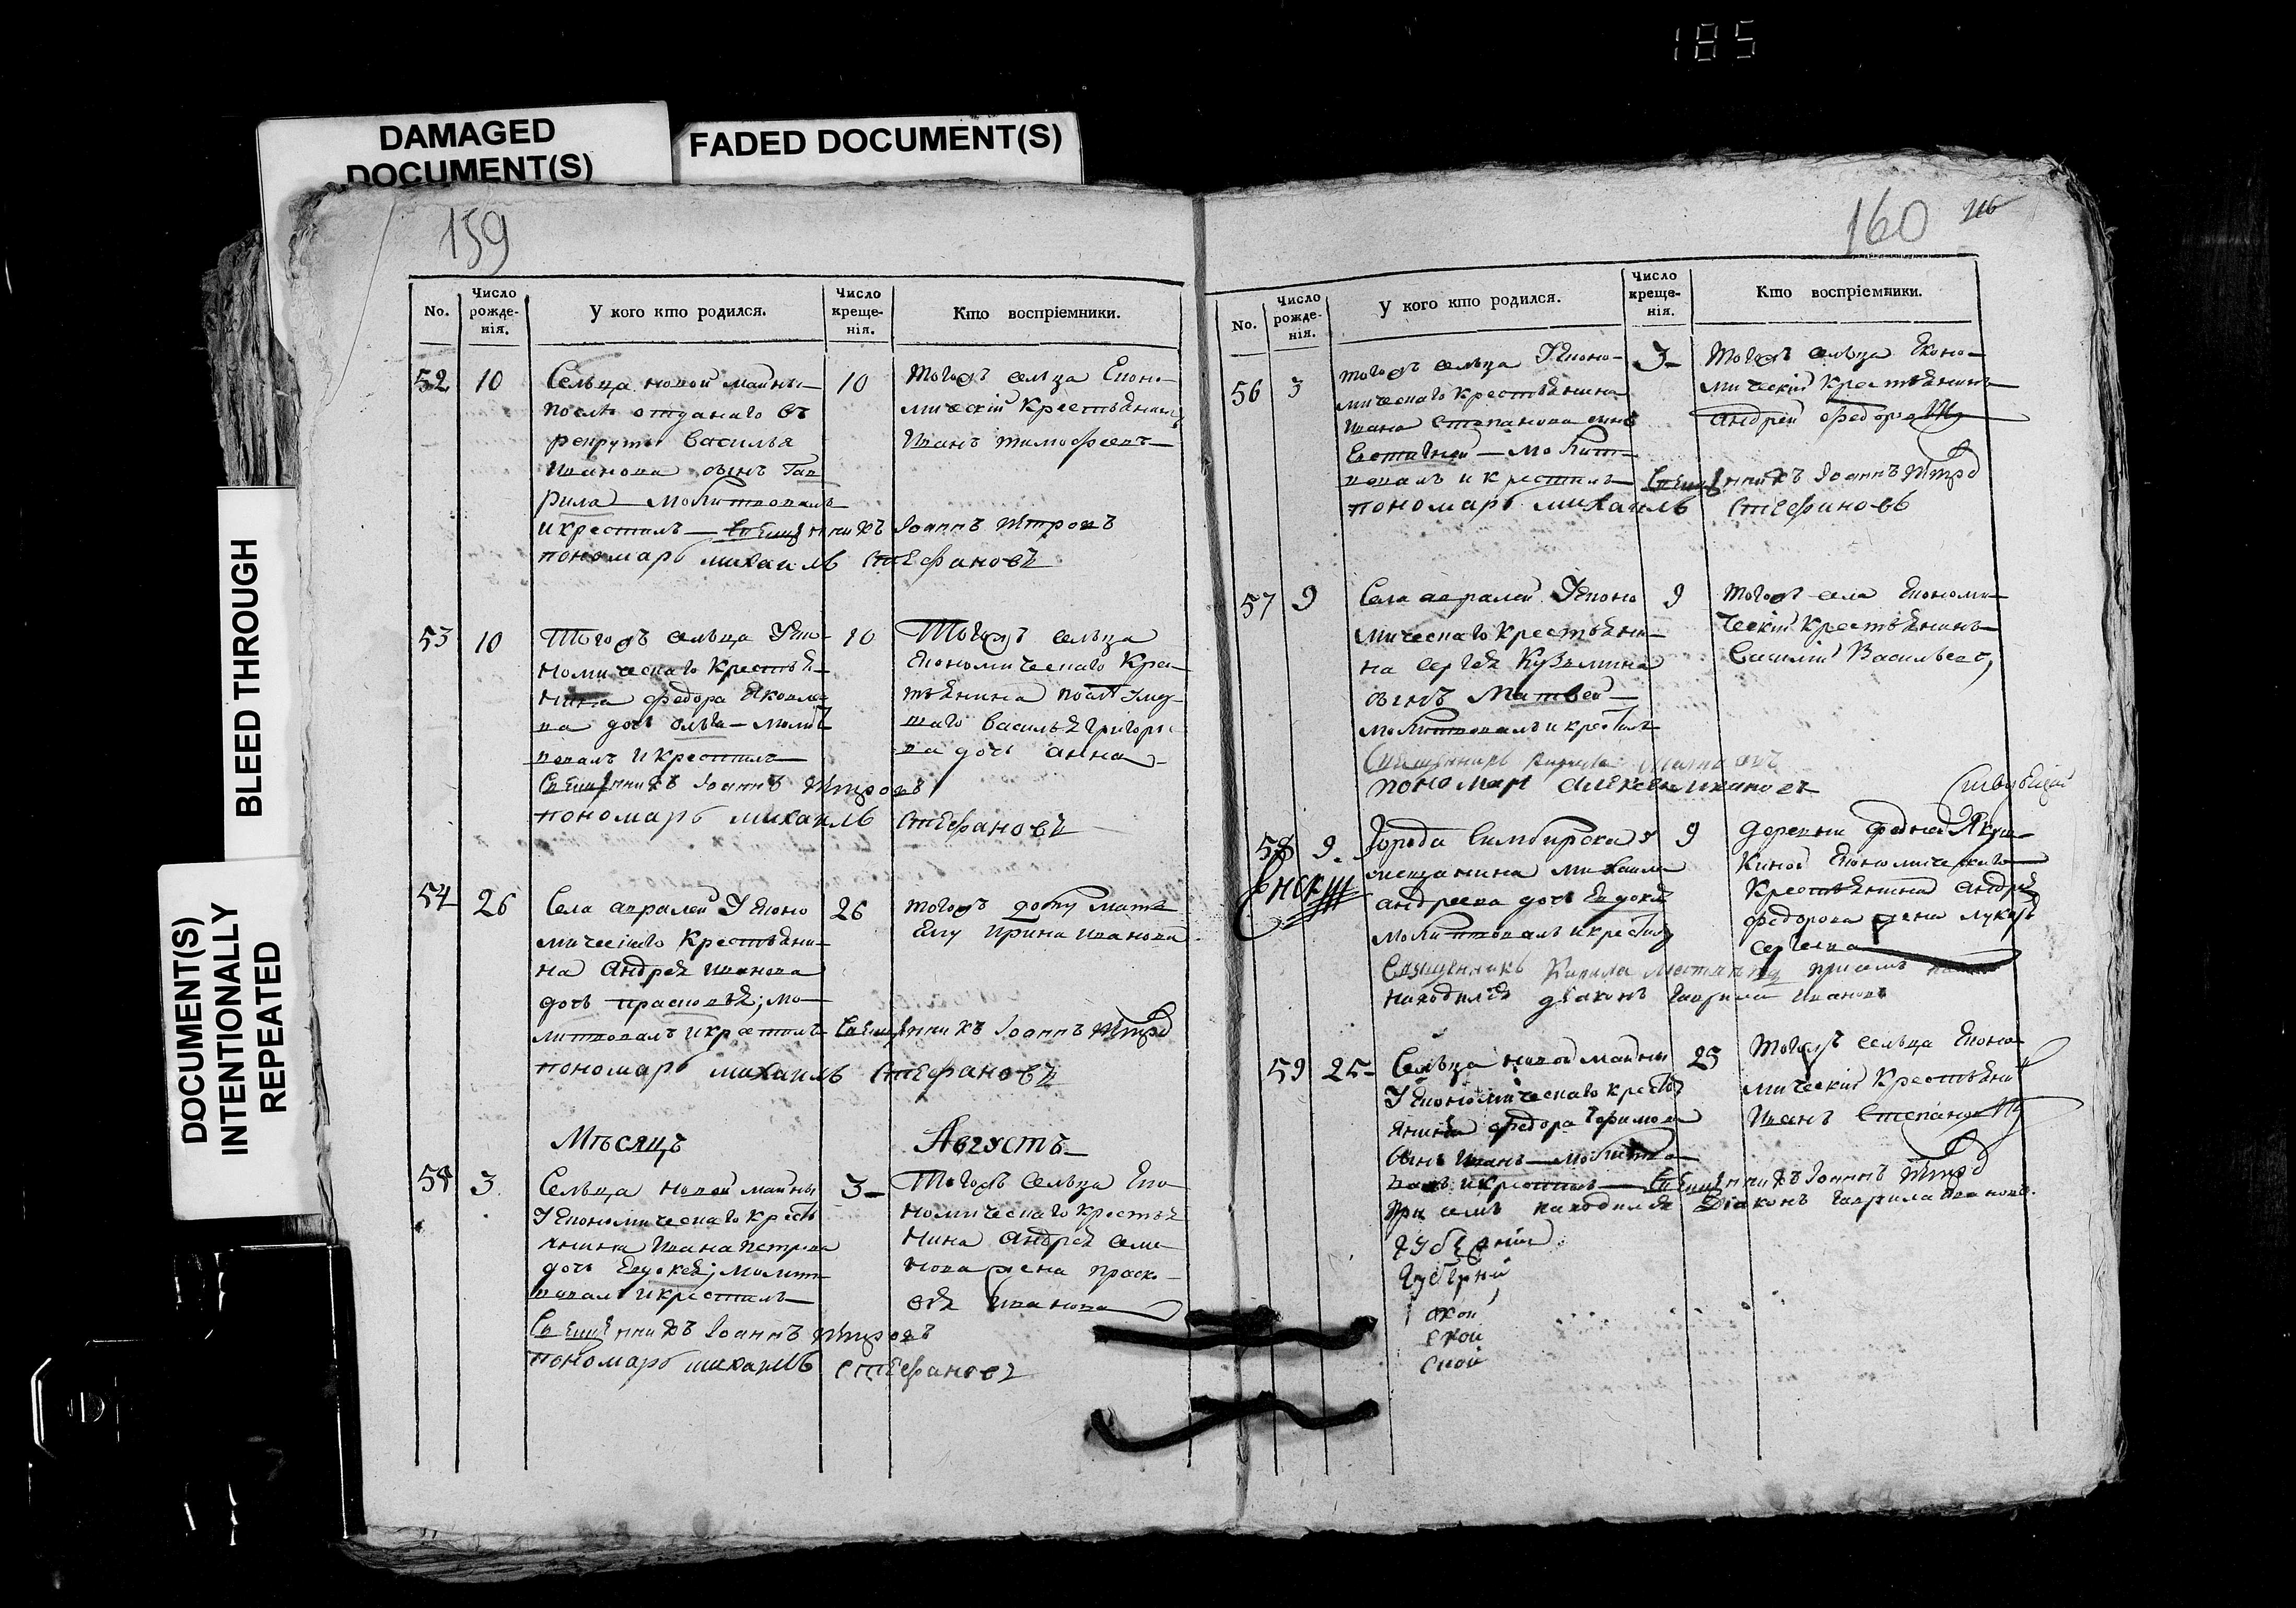 185
DAMAGED
DOCUMENT(S)
FADED DOCUMENT(S)
BLEED THROUGH
DOCUMENT(S)
INTENTIONALLY
REPEATED
159
No.
Число
рожде-
нія.
У кого кто родился.
Число
креще-
нія.
Кто воспріемники.
52 10
Сельца новой майны
после отданаго въ
рекруты Василья
Иванова сынъ Гав
рила — молитвовалъ
и крестилъ — Священникъ Іоаннъ Петровъ
пономарь михаилъ Стефановъ
10
Тогожъ сельца Еконо-
мическій крестьянинъ
Иванъ тимофеевъ
53 10
Тогожъ сельца У Эко-
номическаго крестья-
нина федора Яковле-
ва дочь олга — молит
вовалъ и крестилъ
Священникъ Іоаннъ Петровъ
пономарь михаилъ Стефановъ
10
Тогожъ сельца
Економическаго кре-
тьянина после умер-
шаго Василья Григорье-
ва дочь анна
54 26
Села авралей У Еконо
мическаго крестьяни-
на Андрея Иванова
дочь прасковья; мо-
литвовалъ и крестилъ Священникъ Іоаннъ Петро
пономарь михаилъ Стефановъ
26
тогожъ дому мать
Ему Ирина Иванова
Мѣсяцъ
Августъ
3
Сельца новой майны
У Економическаго кресть
янина Ивана петрова
дочь Евдокея; молит-
вовалъ и крестилъ
Священникъ Іоаннъ Петровъ
пономарь михаилъ Стефановъ
3
Тогожъ Сельца Еко-
номическаго крестья
нина Андрея Семе
нова жена праско-
вья Иванова
160
No.
Число
рожде-
нія.
У кого кто родился.
Число
креще-
нія.
Кто воспріемники.
56 3
тогожъ сельца У Еконо-
мическаго крестьянина
Ивана Степанова сынъ
Евстигней — молит-
вовалъ и крестилъ Священникъ Іоаннъ Петро
пономарь михаилъ Стефановъ
3
Тогожъ сельца Еконо-
мическій крестьянинъ
андрей федоровъ
57 9
Села авралей У Еконо
мическаго крестьяни-
на сергея Кузьмина
сынъ Матвей
молитвовалъ и крестилъ
Священникъ Кирила
пономарь Алексей Ивановъ
9
тогожъ села Економи-
ческій крестьянинъ
Василій Васильевъ
58 9
Города Симбирска у
мещанина Михаила
андреева дочь Евдокея
молитвовалъ и крестилъ
Священникъ Кирила при семъ
находился дьяконъ Гаврила Ивановъ
9
деревни
Економическаго
Крестьянина Андрея
федорова жена лукерья
Сергеева
59 25
Сельца новой майны
У Економическаго кресть
янина федора Ефимова
сынъ Иванъ — молитво
валъ и крестилъ — Священникъ Іоаннъ Петро
при семъ находился Діаконъ Гаврила Ивановъ.
25
Тогожъ сельца Еконо
мическій крестьянинъ
Иванъ Степановъ
губерніи
губерній
ской
ской
ской